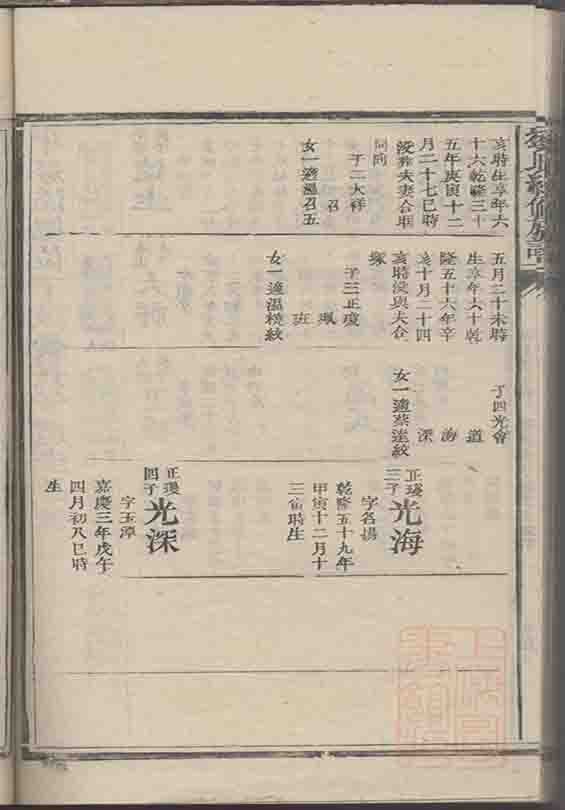 亥時生享年六
十六乾隆三十
五年庚寅十二
月二十七巳時
沒葬夫妻合冢
同向
子二大祥
召
女一適溫召五
五月二十未時
生享年六十乾
隆五十六年辛
亥十月二十四
亥時沒與夫合
冢
子三正瓊
珮
班
女一適溫模紋
子四光會
道
海
深
女一適蔡達紋
正瓊三子光海
字名揚
乾隆五十九年
甲寅十二月十
三寅時生
正瓊四子光深
字玉潭
嘉慶三年戊午
四月初八巳時
生